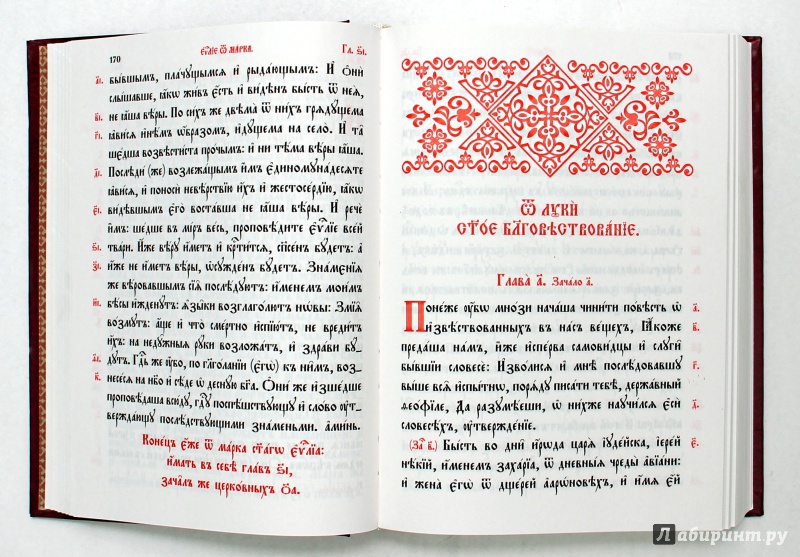 170 Є҆ѵⷢ҇лїе ѿ ма́рка. Гл. ѕ҃і.
бы́вшымъ, пла́чꙋщымсѧ и҆ рыда́ющымъ: И҆ ѻ҆ни́
слы́шавше, ꙗ҆́кѡ жи́въ є҆́сть и҆ ви́дѣнъ бы́сть ѿ неѧ̀,
не ꙗ҆́ша вѣ́ры. По си́хъ же двѣма̀ ѿ ни́хъ грѧдꙋ́щема
ꙗ҆ви́сѧ и҆нѣ́мъ ѡ҆́бразомъ, и҆дꙋ́щема на село̀. И҆ та̑
шє́дша возвѣсти́ста прѡ́чымъ: и҆ ни тѣ́ма вѣ́ры ꙗ҆́ша.
Послѣди́ (же) возлежа́щымъ и҆̀мъ є҆диномꙋна́десѧте
ꙗ҆ви́сѧ, и҆ поносѝ невѣ́рствїю и҆́хъ и҆ жестосе́рдїю, ꙗ҆́кѡ
ви́дѣвшымъ є҆го̀ воста́вша не ꙗ҆́ша вѣ́ры. И҆ речѐ
и҆̀мъ: ше́дше въ мі́ръ ве́сь, проповѣ́дите є҆ѵⷢ҇лїе все́й
тва́ри. И҆́же вѣ́рꙋ и҆́метъ и҆ крⷭ҇ти́тсѧ, сп҃се́нъ бꙋ́детъ: а҆
и҆́же не и҆́метъ вѣ́ры, ѡ҆сꙋжде́нъ бꙋ́детъ. Зна́мєнїѧ
же вѣ́ровавшымъ сїѧ̑ послѣ́дꙋютъ: и҆́менемъ мои́мъ
бѣ́сы и҆жденꙋ́тъ: ѧ҆зы̑ки возглаго́лютъ нѡ́вы: Ѕмїѧ̑
во́змꙋтъ: а҆́ще и҆ что̀ сме́ртно и҆спїю́тъ, не вреди́тъ
и҆́хъ: на недꙋ́жныѧ рꙋ́ки возложа́тъ, и҆ здра́ви бꙋ́_
дꙋтъ. Гдⷭ҇ь же ᲂу҆́бѡ, по гл҃го́ланїи (є҆гѡ̀) къ ни̑мъ, воз_
несе́сѧ на нб҃о и҆ сѣ́де ѡ҆деснꙋ́ю бг҃а. Ѻ҆ни́ же и҆зше́дше
проповѣ́даша всю́дꙋ, гдⷭ҇ꙋ поспѣшствꙋ́ющꙋ и҆ сло́во ᲂу҆т_
вержда́ющꙋ послѣ́дствꙋющими зна́меньми. А҆ми́нь.
Коне́цъ є҆́же ѿ ма́рка ст҃а́гѡ є҆ѵⷢ҇лїа:
и҆́мать въ себѣ̀ гла́въ ѕ҃і,
зача́лъ же церко́вныхъ ѻ҃а.
Ѿ лꙋкѝ
ст҃о́е бл҃говѣствова́нїе.
Глава̀ а҃. Зача́ло а҃.
Поне́же ᲂу҆́бѡ мно́зи нача́ша чини́ти по́вѣсть ѡ҆
и҆звѣ́ствованныхъ въ на́съ ве́щехъ, ꙗ҆́коже
преда́ша на́мъ, и҆̀же и҆спе́рва самови́дцы и҆ слꙋги̑
бы́вшїи словесѐ: И҆зво́лисѧ и҆ мнѣ̀ послѣ́довавшꙋ
вы́ше всѧ̑ и҆спы́тнѡ, порѧ́дꙋ писа́ти тебѣ̀, держа́вный
ѳео́фїле, Да разꙋмѣ́еши, ѡ҆ ни́хже наꙋчи́лсѧ є҆сѝ
словесѣ́хъ, ᲂу҆твержде́нїе.
(За҄ⷱ҇ в҃.) Бы́сть во дни̑ и҆́рѡда царѧ̀ і҆ꙋде́йска, і҆ере́й
нѣ́кїй, и҆́менемъ заха́рїа, ѿ дне́вныѧ чреды̀ а҆вїа́ни: и҆
и҆ жена̀ є҆гѡ̀ ѿ дще́рей а҆арѡ́новѣхъ, и҆ и҆́мѧ є҆́й
Лабиринт.ру